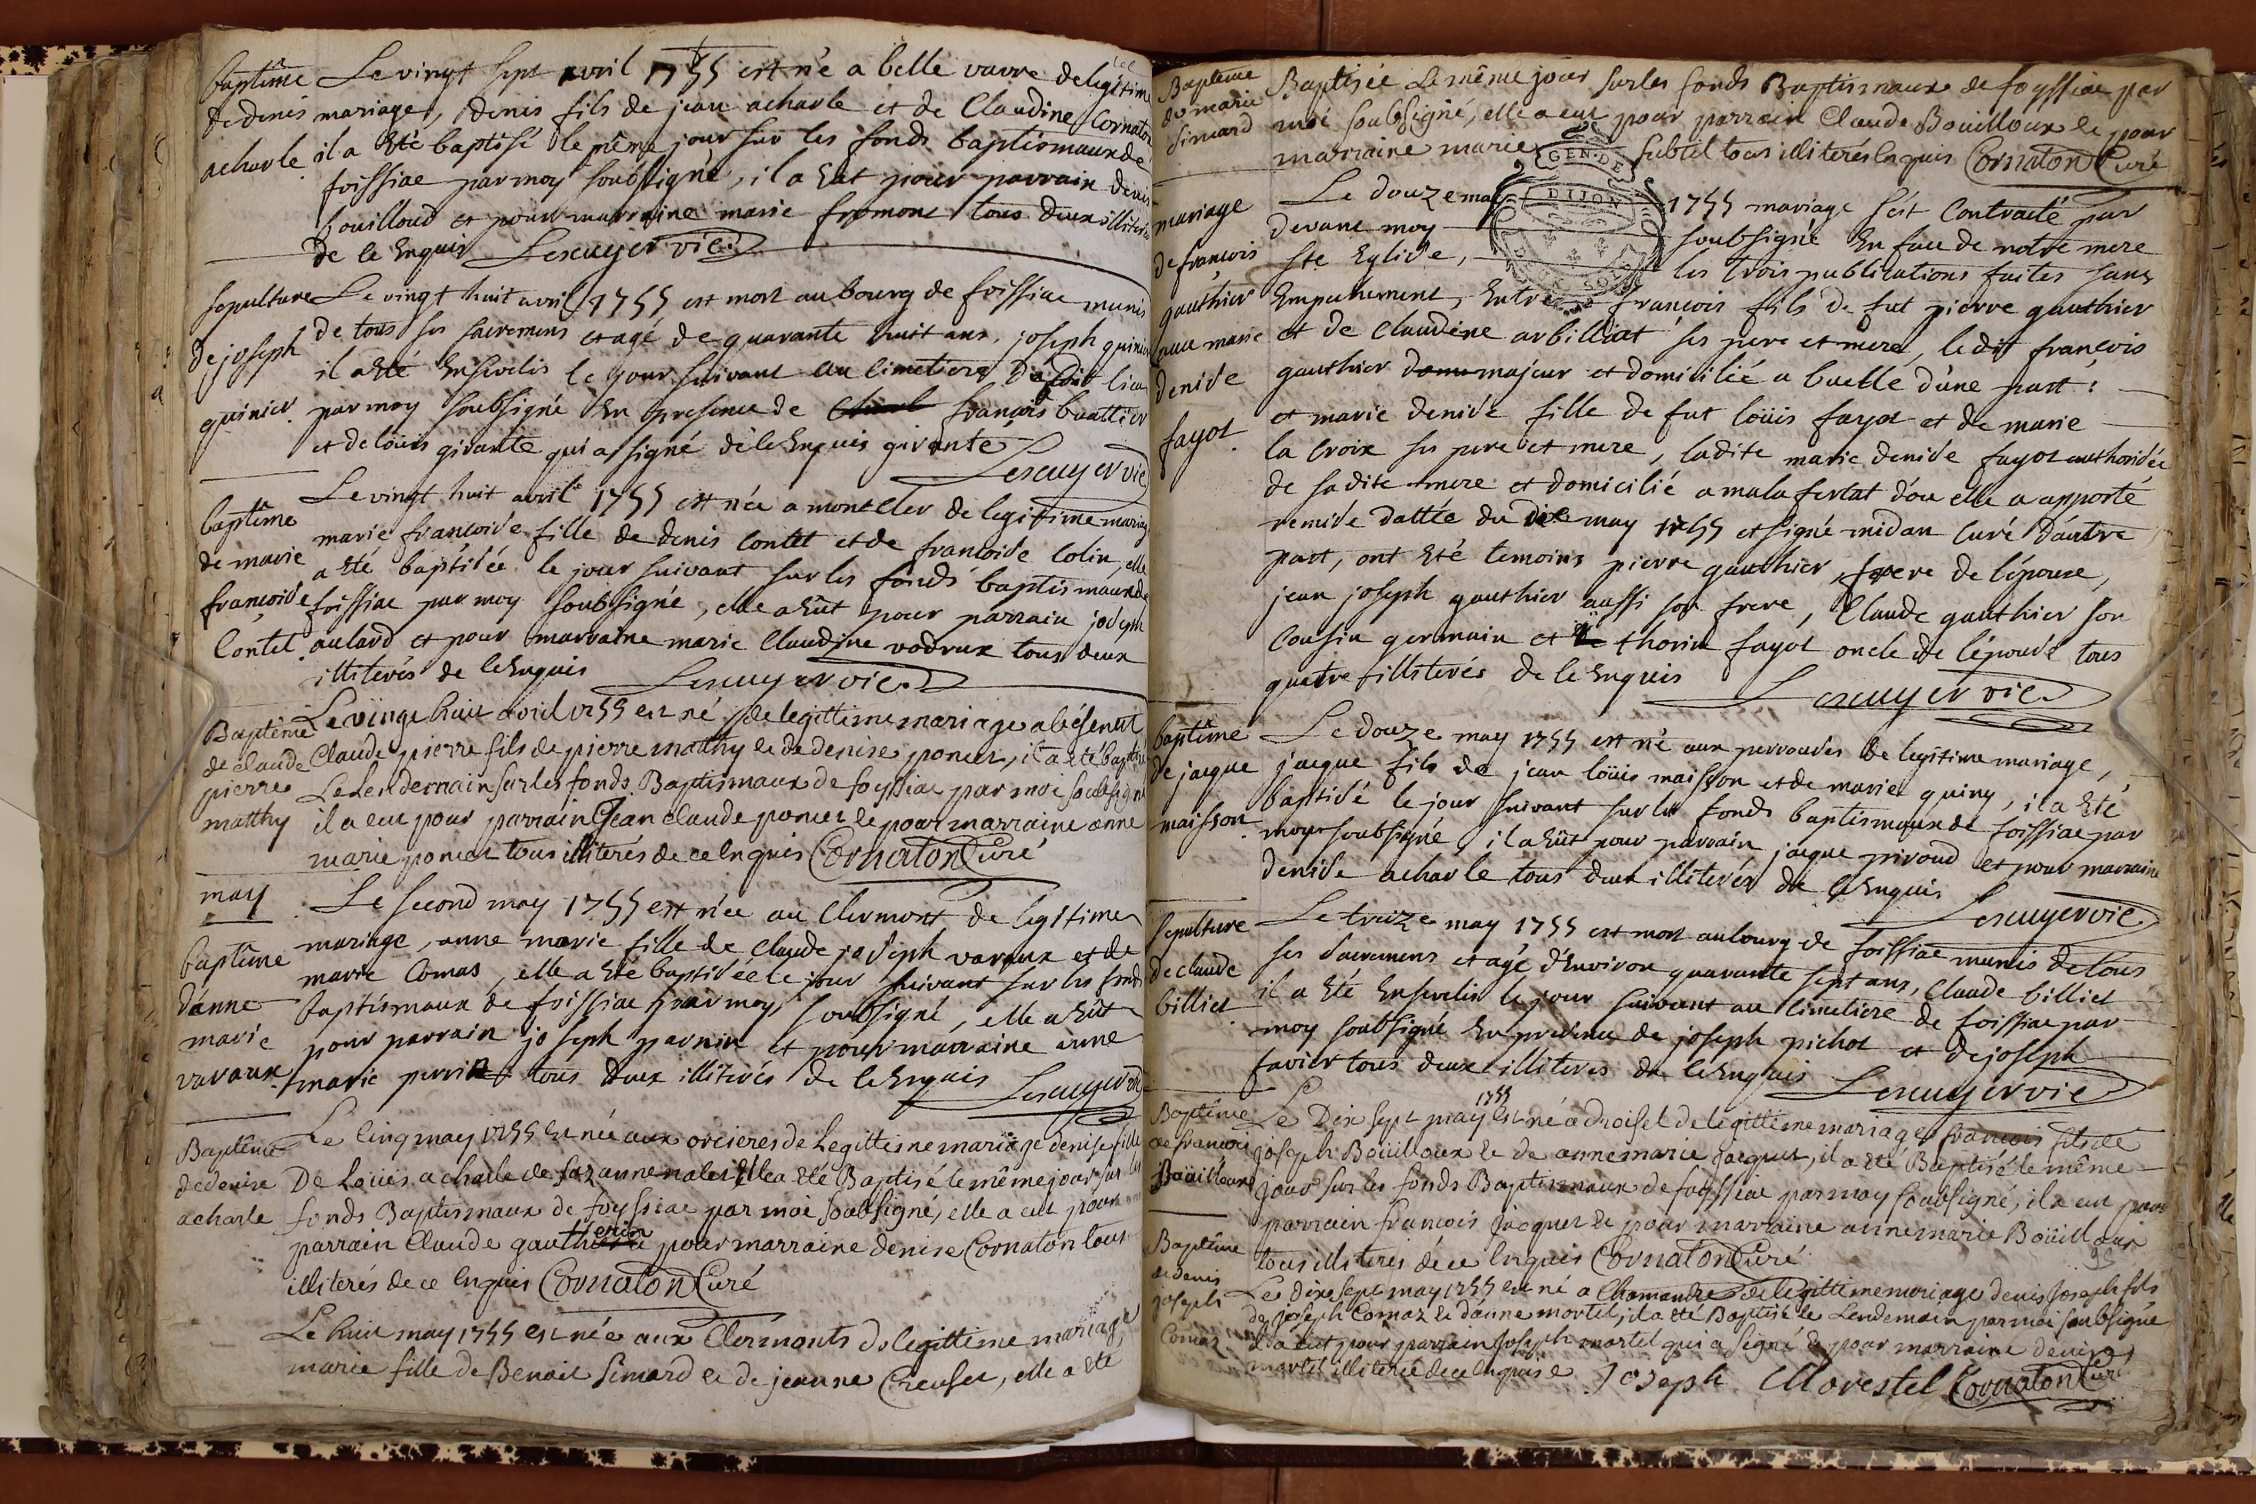 baptême
de denis
acharle
Le vingt sept avril 1755 est né a belle vavre de legitime
mariage, denis fils de jean acharle et de Claudine Cornaton
il a eté baptisé le même jour sur les fonds baptismaux de
foissiac par moy soubsigné, il a eüt pour parrain denis
bouilloud et pour marraine marie fromont tous deux illiterés
de le Enquis Lescuyer vic.
sepulture
de joseph
quinier.
Le vingt huit avril 1755 est mort au bourg de foissiac munis
de tous ses sacremens et agé de quarante huit ans, joseph quinier
il a eté Ensevelis le jour suivant au cimetiere dudit lieu
par moy soubsigné En presence de françois buattier
et de loüis girante qui a signé de le Enquis girante
Lescuyer vic
baptême
de marie
françoise
Contet.
Le vingt huit avril 1755 est née a montcler de legitime mariage
marie françoise fille de denis Contet et de françoise Colin, elle
a eté baptisée le jour suivant sur les fonds baptismaux de
foissiac par moy soubsigné, elle a eüt pour parrain joseph
aulard et pour marraine marie Claudine vodrux tous deux
illiterés de le Enquis Lescuyer vic.
Baptême
de claude
pierre
matthy
Le vingt huit avril 1755 est né de legittime mariage a bésenat
Claude pierre fils de pierre matthy et de denise poncet, il a eté baptisé
Le Lendemain sur les fonds Baptismaux de foyssiac par moi soubsigné
il a eut pour parrain Jean claude poncet et pour marraine anne
marie poncet tous illiterés de ce Enquis Cornaton Curé
may
baptême
d'anne
marie
varaux.
Le second may 1755 est née au Clermont de legitime
mariage, anne marie fille de Claude joseph varaux et de
marie Comas, elle a eté baptisée le jour suivant sur les fonds
baptismaux de foissiac par moy soubsigné, elle a eüt
pour parrain joseph parnin et pour marraine anne
marie perrin tous deux illiterés de le Enquis Lescuyer vic
Baptême
de denise
acharle
Le Cinq may 1755 Est née aux orcieres de Legittime mariage denise fille
De Loüis acharle de Suzanne nalet Elle a eté Baptisé le même jour sur les
fonds Baptismaux de foyssiac par moi soubsigné, elle a eut pour
parrain Claude gauthier et pour marraine denise Cornaton tous
illiterés de ce Enquis Cornaton Curé
Le huit may 1755 est née aux Clermonts de legittime mariage
marie fille de Benoit Simard et de jeanne Creuset, elle a eté
Baptême
de marie
Simard
Baptisée Le même jour sur les fonds Baptismaux de foyssiac par
moi soubsigné, elle a eut pour parrain Claude Bouilloux et pour
marraine marie subtil tous illiterés Enquis Cornaton Curé
GEN. DE
DIJON
mariage
de françois
gauthier
avec marie
denise
fayot.
Le douze may 1755 mariage s'est Contracté par
devant moy soubsigné En face de notre mere
ste Eglise, les trois publications faites sans
Empechement, Entre françois fils de fut pierre gauthier
et de Claudine arbilliat ses pere et mere, ledit françois
gauthier majeur et domicilié a buelle d'une part:
et marie denise fille de fut loüis fayot et de marie
la Croix ses pere et mere, ladite marie denise fayot authorisée
de sadite mere et domicilié a malafretat d'ou elle a apporté
remise dattée du dix may 1755 et signé midan Curé d'autre
part, ont eté temoins pierre gauthier frere de l'epoux,
jean joseph gauthier aussi son frere, Claude gauthier son
Cousin germain et thorin fayot oncle de l'epouse tous
quatre illiterés de le Enquis
Lescuyer vic.
baptême
de jacque
maisson.
Le douze may 1755 est né aux perroudes de legitime mariage,
jacque fils de jean loüis maisson et de marie quiny, il a eté
baptisé le jour suivant sur les fonds baptismaux de foissiac par
moy soubsigné, il a eüt pour parrain jacque pivoud et pour marraine
denise acharle tous deux illiterés de le Enquis
Lescuyer vic
sepulture
de claude
billiet.
Le treize may 1755 est mort au bourg de foissiac munis de tous
ses sacremens et agé d'Environ quarante sept ans, Claude billiet
il a eté Ensevelis le jour suivant au Cimetiere de foissiac par
moy soubsigné En presence de joseph pichot et de joseph
favier tous deux illiterés de le Enquis Lescuyer vic
Baptême
de françois
Boüilloux
Le Dix sept may 1755 est né a droiset de legittime mariage françois fils de
joseph Boüilloux et de anne marie Jacquet, il a eté Baptisé le même
jour sur les fonds Baptismaux de foyssiac par moy soubsigné, il a eut pour
parrain françois Jacquet et pour marraine anne marie Boüilloux
tous illiterés de ce Enquis Cornaton Curé
Baptême
de denis
joseph
Comas
Le dix sept may 1755 est né a Chamandre de legittime mariage denis Joseph fils
de joseph Comaz et d'anne mortel, il a eté Baptisé le Lendemain par moi soubsigné
il a eut pour parrain Joseph martel qui a signé et pour marraine denise
martel illiterée de ce Enquise Joseph Morestel Cornaton Curé